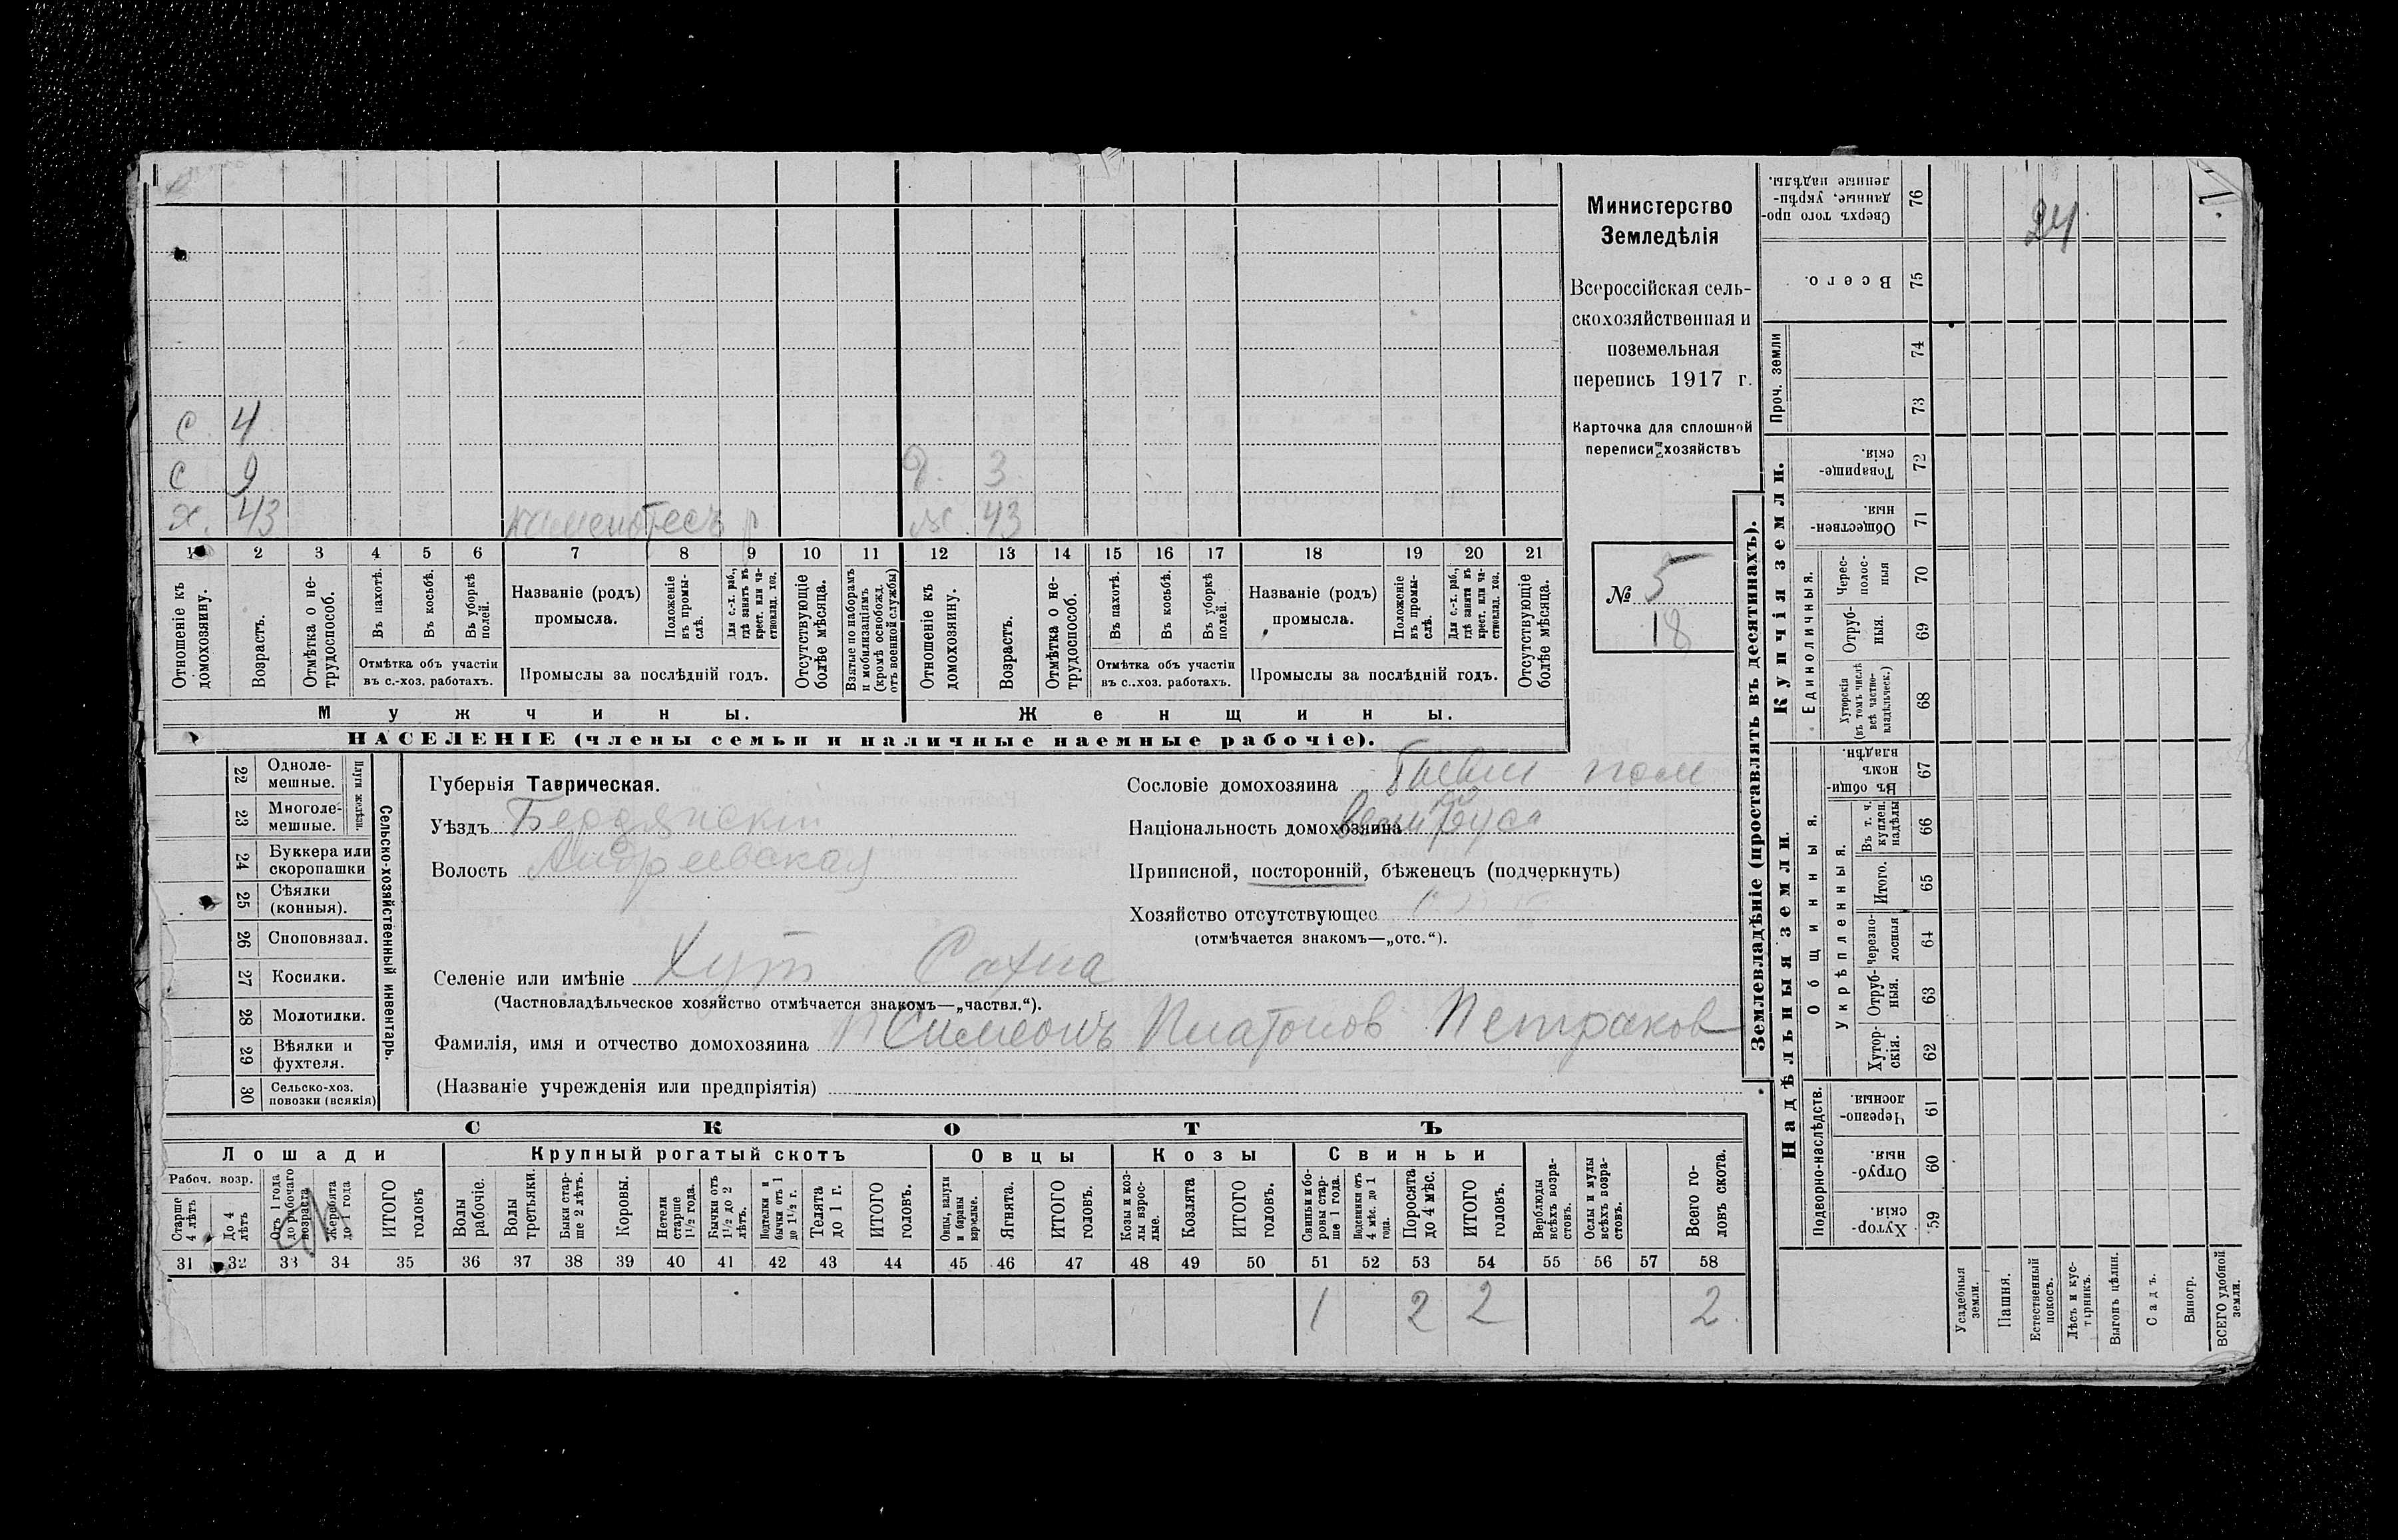 24
с. 4
с 9
х. 43 каменотесъ р
д. 3
ж. 43
1 2 3 4 5 6 7 8 9 10 11 12 13 14 15 16 17 18 19 20 21
Отношеніе къ домохозяину.
Возрастъ.
Отмѣтка о не-
трудоспособ.
Въ пахотѣ.
Въ косьбѣ.
Въ уборкѣ полей.
Отмѣтка объ участіи
въ с.-хоз. работахъ.
Названіе (родъ)
промысла.
Положеніе въ промы-
слѣ.
Для с.-х. раб.,
гдѣ занятъ въ
крест. или ча-
стновлад. хоз.
Промыслы за послѣдній годъ.
Отсутствующіе
болѣе мѣсяца.
Взятые по наборамъ
и мобилизаціямъ
(кромѣ освобожд.
отъ военной службы)
Отношеніе къ
домохозяину.
Возрастъ.
Отмѣтка о не-
трудоспособ.
Въ пахотѣ.
Въ косьбѣ.
Въ уборкѣ
полей.
Отмѣтка объ участіи
въ с..хоз. работахъ.
Названіе (родъ)
промысла.
Положеніе
въ промы-
слѣ.
Для с.-х. раб.,
гдѣ занята въ
крест. или ча-
стновлад. хоз.
Промыслы за послѣдній годъ.
Отсутствующіе
болѣе мѣсяца.
Мужчины.
Женщины.
НАСЕЛЕНІЕ (члены семьи и наличные наемные рабочіе).
Министерство
Земледѣлія
Всероссійская сель-
скохозяйственная и
поземельная
перепись 1917 г.
Карточка для сплошной
переписи хозяйствъ
№ 5
18
22 Одноле-
мешные.
23 Многоле-
мешные.
Плуги желѣзн.
24 Буккера или
скоропашки
25 Сѣялки
(конныя).
26 Сноповязал.
27 Косилки.
28 Молотилки.
29 Вѣялки и
фухтеля.
30 Сельско-хоз.
повозки (всякія)
Сельско-хозяйственный инвентарь.
Губернія Таврическая.
Уѣздъ Бердянскій
Волость Андреевская
Сословіе домохозяина
Національность домохозяина
Приписной, посторонній, бѣженецъ (подчеркнуть)
Хозяйство отсутствующее
(отмѣчается знакомъ—„отс.“).
Селеніе или имѣніе Хут
(Частновладѣльческое хозяйство отмѣчается знакомъ—„частвл.“).
Фамилія, имя и отчество домохозяина Симеонъ Платонов Петраков
(Названіе учрежденія или предпріятія)
СКОТЪ
Лошади
Крупный рогатый скотъ
Овцы
Козы
Свиньи
Рабоч. возр.
Старше
4 лѣтъ
До 4
лѣтъ
Отъ 1 года
до рабочаго
возраста
Жеребята
до 1 года
ИТОГО
головъ
Волы
рабочіе.
Волы
третьяки.
Быки стар-
ше 2 лѣтъ.
Коровы.
Нетели
старше
1½ года.
Бычки отъ
1½ до 2
лѣтъ.
Подтелки и
бычки отъ 1
до 1½ г.
Телята
до 1 г.
ИТОГО
головъ.
Овцы, валухи
и бараны
взрослые.
Ягнята.
ИТОГО
головъ.
Козы и коз-
лы взрос-
лые.
Козлята
ИТОГО
головъ.
Свиньи и бо-
ровы стар-
ше 1 года.
Подсвинки отъ
4 мѣс. до 1
года.
Поросята
до 4 мѣс.
ИТОГО
головъ.
Верблюды
всѣхъ возра-
стовъ.
Ослы и мулы
всѣхъ возра-
стовъ.
Всего го-
ловъ скота.
31 32 33 34 35 36 37 38 39 40 41 42 43 44 45 46 47 48 49 50 51 52 53 54 55 56 57 58
1 2 2 2
Землевладѣніе (проставлять въ десятинахъ).
Надѣльныя земли.
Купчія земли.
Проч. земли
Подворно-наслѣдств.
Общинныя.
Укрѣпленныя.
Единоличныя.
Сверхъ того про-
данные, укрѣп-
ленные надѣлы.
76
Всего.
75
74
73
Товарище-
скія.
72
Обществен-
ныя.
71
Черес-
полос-
ныя
70
Отруб-
ныя.
69
Хуторскія
(въ томъ числѣ
всѣ частно-
владѣльческ.)
68
Въ общин-
номъ
владѣн.
67
Въ т. ч.
куплен.
надѣлы
66
Итого.
65
Черезпо-
лосныя
64
Отруб-
ныя.
63
Хутор-
скія.
62
Черезпо-
лосныя.
61
Отруб-
ныя.
60
Хутор-
скія.
59
Усадебныя
земли.
Пашня.
Естественный
покосъ.
Лѣсъ и кус-
тарникъ.
Выгонъ цѣлин.
Садъ.
Виногр.
ВСЕГО удобной
земли.